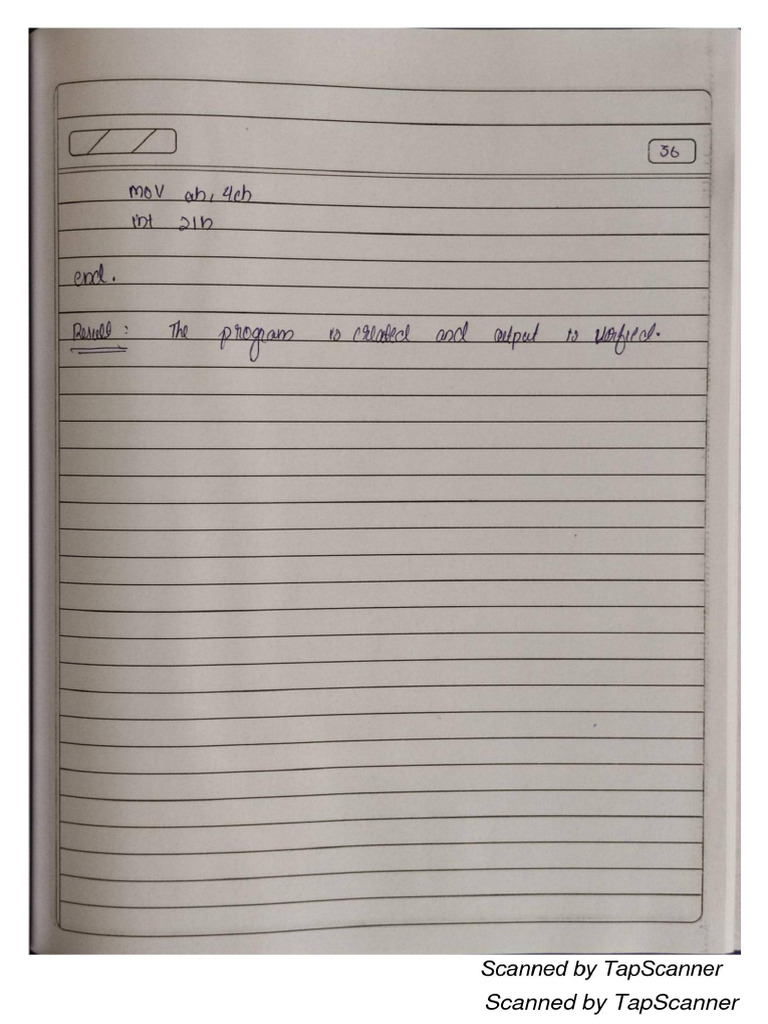 36
mov ah, 4ch
int 21h
end.
Result : The program is created and output is verified.
Scanned by TapScanner
Scanned by TapScanner